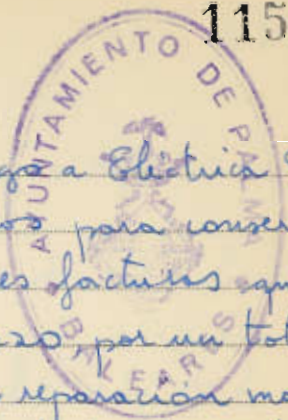 115
AYUNTAMIENTO DE PALMA
BALEARES
a Eléctrica
para conser
es facturas qu
por un tot
reparación mo